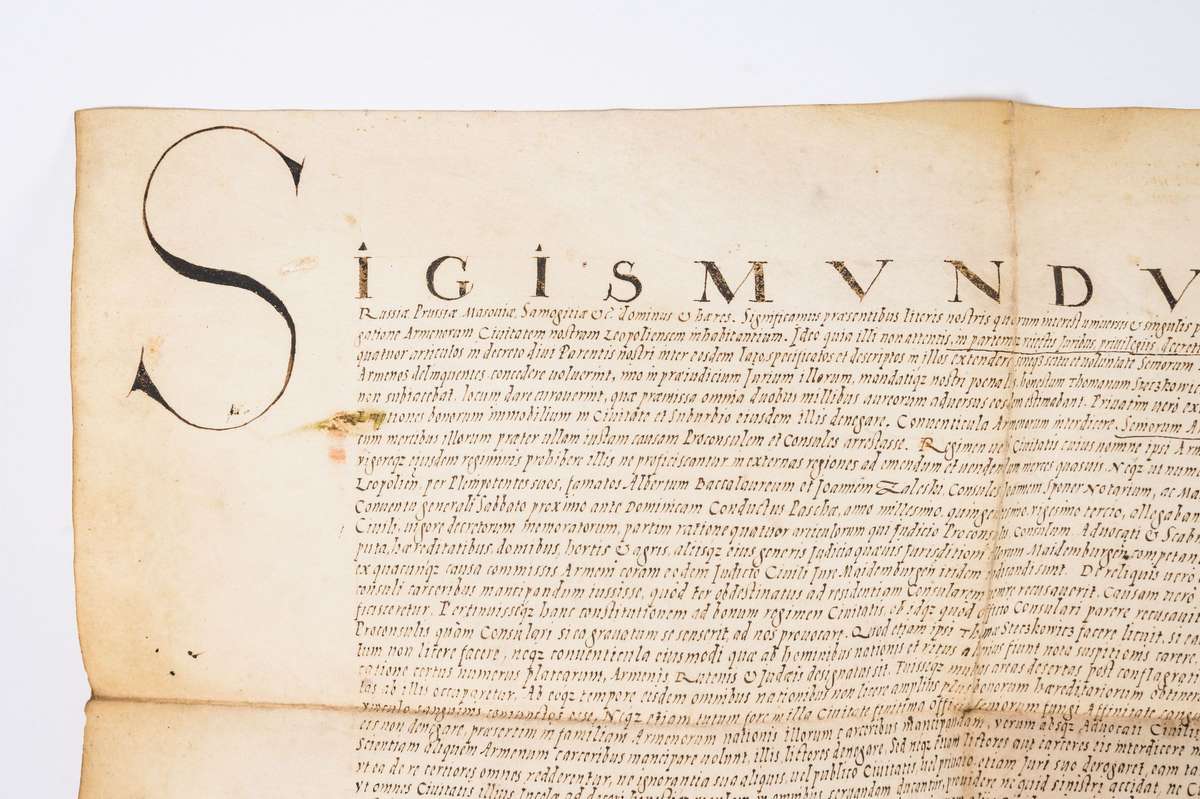 SIGISMVNDV
Russiæ Prussiæ Masoviæ, Samogitiæ &c. dominus & hæres. Significamus præsentibus literis nostris quorum interest universis & singulis
gotione Armenorum Civitatem nostram Leopoliensem inhabitantium. Ideo quia illi non attentis, in partem reiectis Juribus privilegiis decret
quatuor articulos in decreto divi Parentis nostri inter eosdem lato, specificatos et descriptos in illos extendere scitu et voluntate Semorum
Armenos delinquentes concedere voluerint, imo in præiudicium Jurium illorum, mandatiqz nostri poenalis, honestum Thomam Steczkowi
non subiacebat, locum dare curaverint, quæ præmissa omnia duobus millibus aureorum adversus eosdem æstimabant. Privatim vero ex
emptiones bonorum immobilium in Civitate et Suburbio eiusdem illis denegare. Conventicula Armenorum interdicere. Semorum Ar
cum mercibus illorum præter ullam iustam causam Proconsulem et Consules arrestasse. Regimen Civitatis cuius nomine ipsi Arme
vigoreqz eiusdem regiminis prohibere illis ne proficiscantur in externas regiones ad emendum et vendendum merces quasvis. Neqz ut num
Leopolien, per Plenipotentes suos, famatos Albertum Baccalaureum et Joannem Zaleski, Consules Joannem Sponer Notarium, ac Ma
Conventu generali Sabbato proximo ante Dominicam Conductus Paschæ, anno millesimo, quingentesimo, vigesimo tercio, allegabant
Civili, vigore decretorum memoratorum, partim ratione quatuor articulorum qui Judicio Proconsulis, Consulum, Advocati & Scab
puta, hæreditatibus, domibus, hortis & agris, aliisqz eius generis Judicia quævis Jurisditioni illorum Maidemburgen competant
ex quacunqz causa commissis Armeni coram eodem Judicio Civili Jure Maidemburgen itidem iudicandi sunt. De reliquis vero
consuli carceribus mancipandum iussisse, quod ter obdestinatus ad residentiam Consularem venire recusaverit. Causam vero
ficisceretur. Pertinuisseqz hanc constitutionem ad bonum regimen Civitatis, ob idqz quod officio Consulari parere recusavit
Proconsulis quam Consulari si ea gravatum se senserit, ad nos provocare. Quod etiam ipsi Thomæ Steczkowicz facere licuit, se ea
tum non licere facere, neqz conventicula eiusmodi quæ ab hominibus nationis et ritus alienius fiunt noto suspitionis carere
catione certus numerus platearum, Armenis Rutenis & Judæis designatus sit. Fuisseqz multas areas desertas post conflagran
tas ab illis occuparetur. Ab eoqz tempore eisdem omnibus nationibus non licere amplius plus bonorum hæreditariorum obtine
vinculo sanguinis coniunctos esse. Neqz etiam tutum fore in illa Civitate finitima officio Semorum fungi Affinitate con
eis non denegare, præsertim in familiam Armenorum nationis illorum carceribus mancipandam, verum absqz Advocati Civilis
Scientiam aliquem Armenum carceribus mancipare volunt, illis lictores denegare. Sed neqz etiam lictores aut carceres eis interdicere
vt ea de re certiores omnes redderentur, ne ignorantia sua aliquis, vel publico Civitatis, vel privato, etiam Juri suo derogaret, eam
vt omnis Civitatis illius Incola ad decori in omnibus servandum ducantur, providere, ne quid sinistri accidat, ne